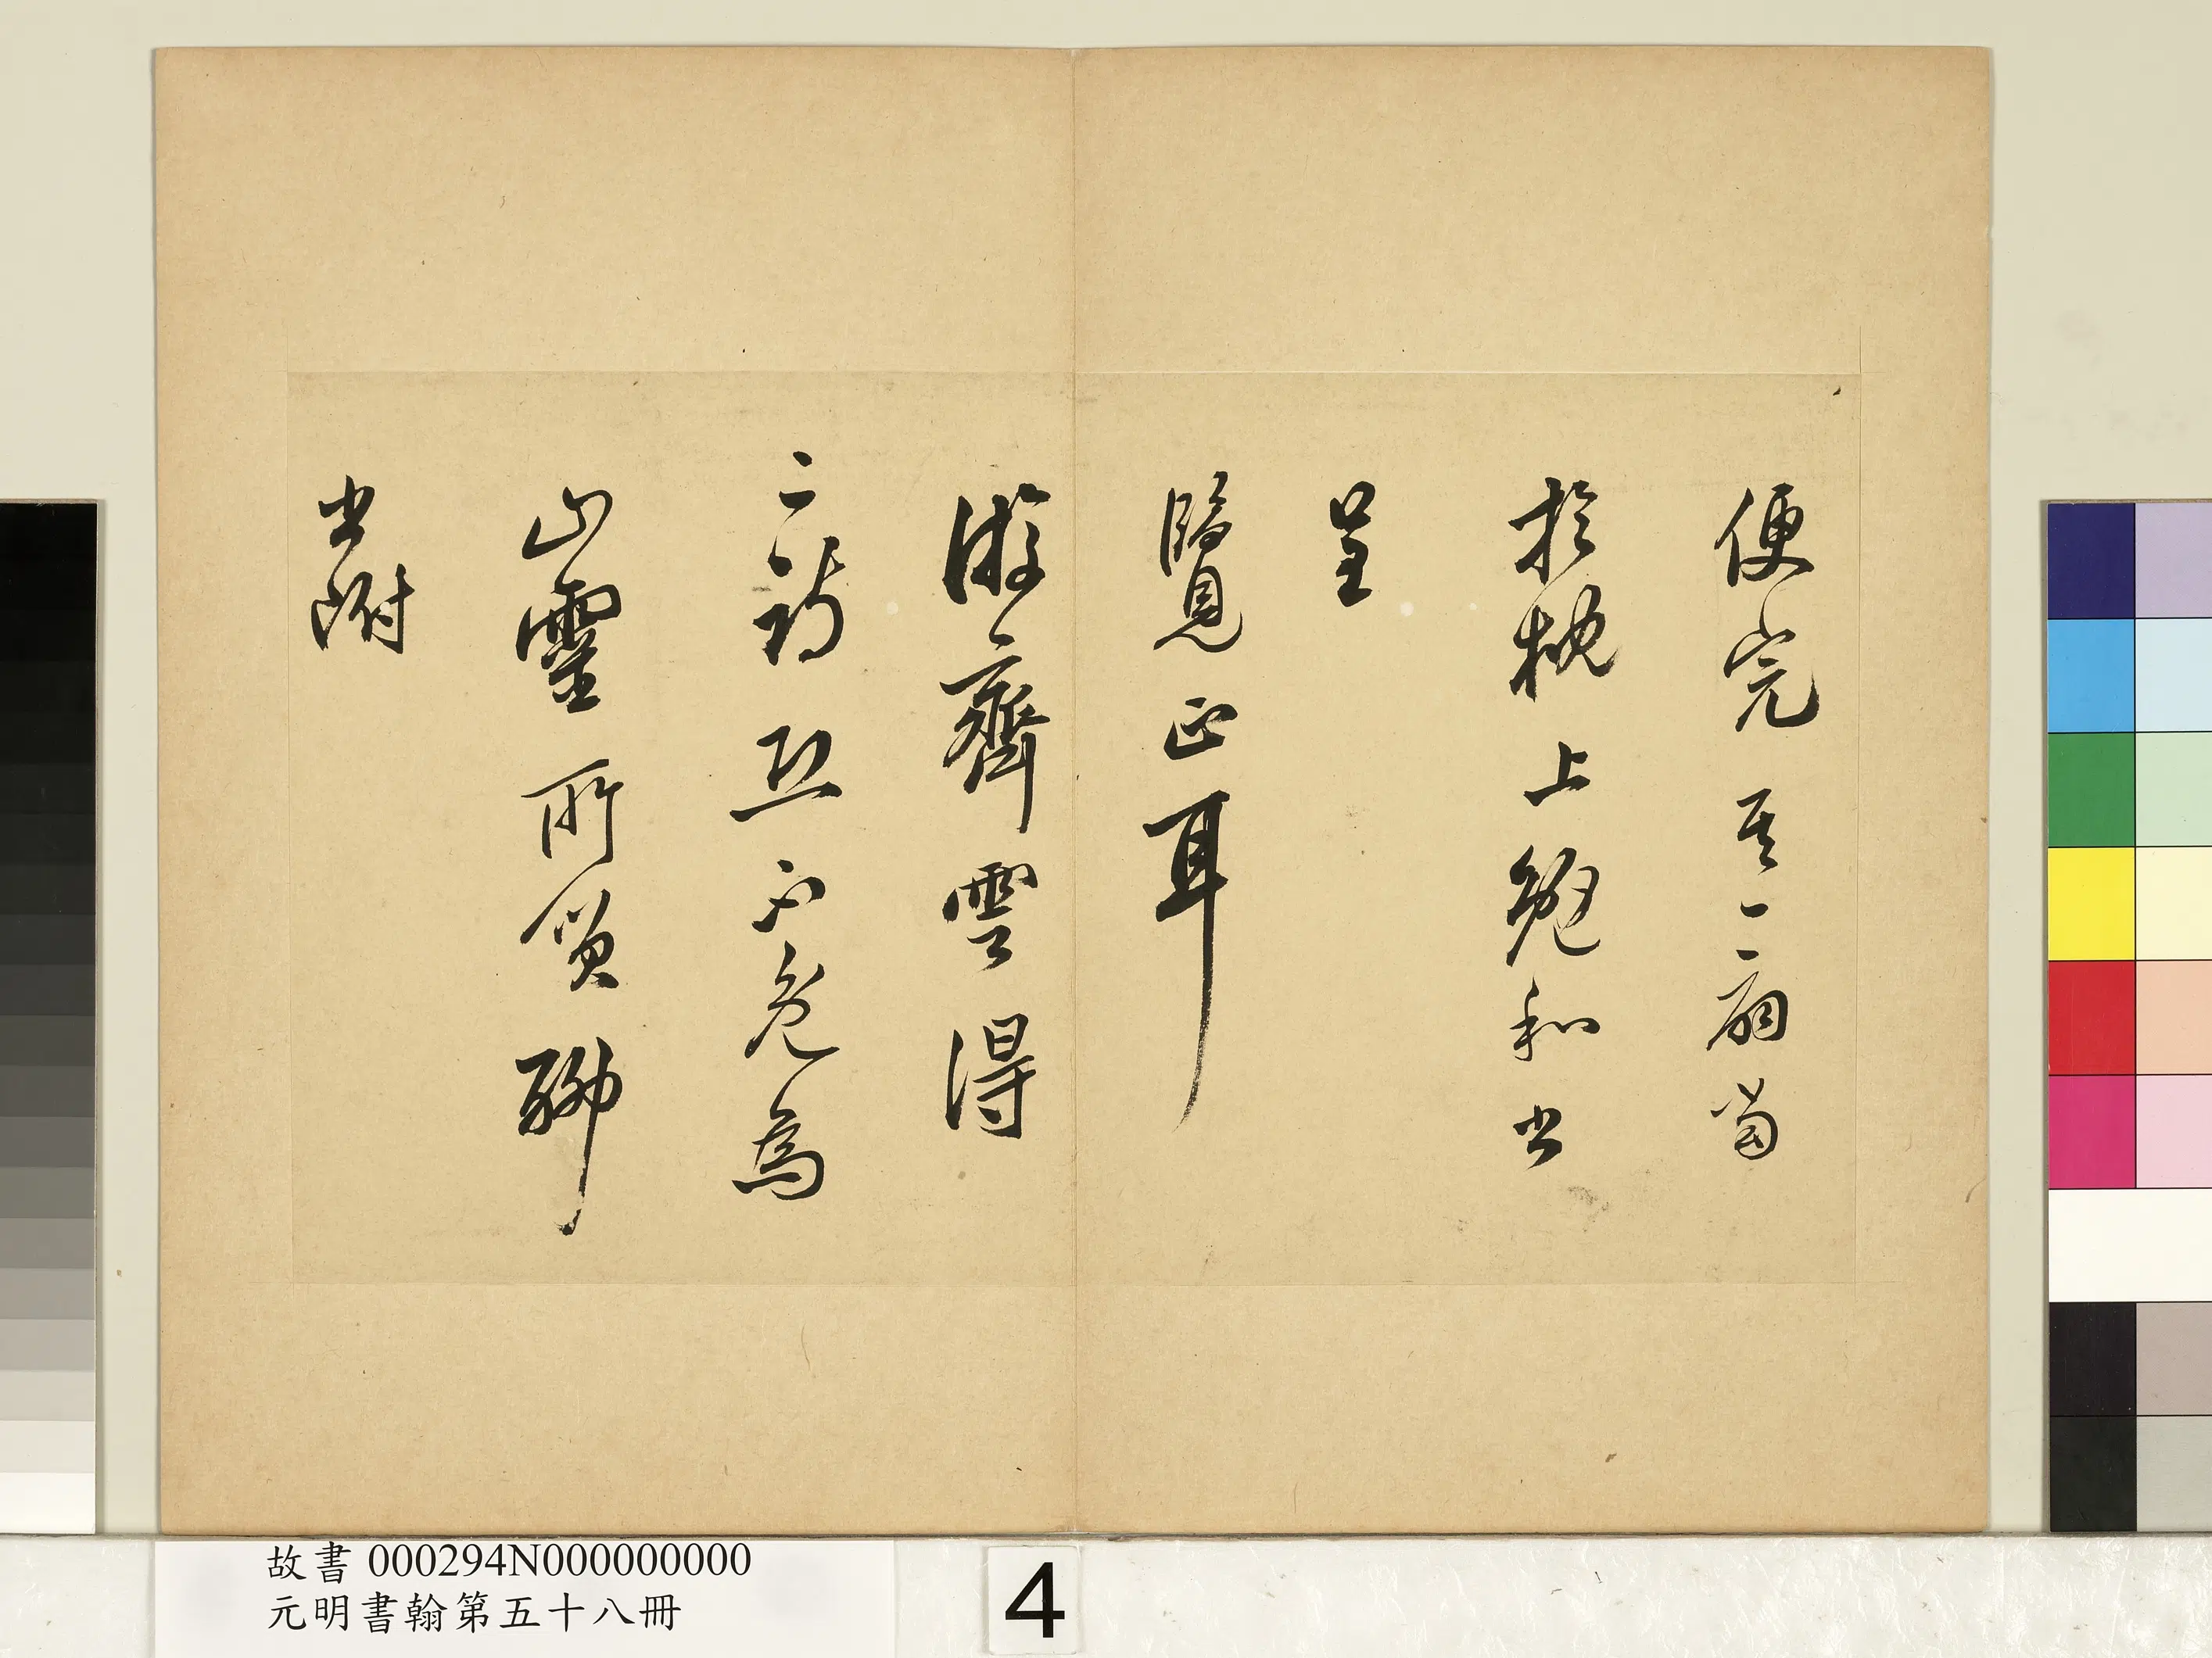 便完其一二扇當
於枕上勉和出
呈
覽正耳
游齊雲得
二詩並不免為
山靈所笑聊
出附
故書 000294N000000000
元明書翰第五十八冊
4